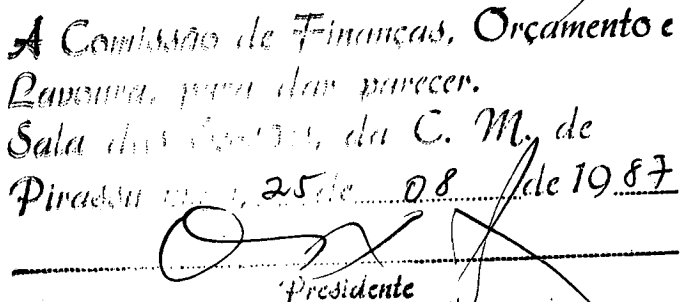 A Comissão de Finanças, Orçamento e
Lavoura, para dar parecer.
Sala das Sessões, da C. M. de
Pirassununga, 25 de 08 de 1987
Presidente